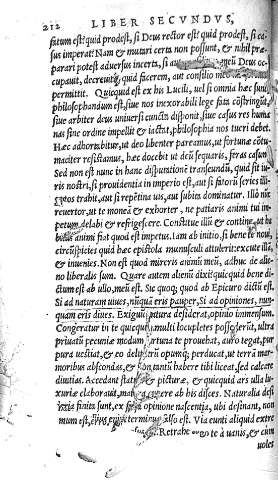 212 LIBER SECVNDVS,
fatum est? quid prodest, si Deus rector est? quid prodest, si ca-
sus imperat? Nam & mutari certa non possunt, & nihil præ-
parari potest aduersus incerta, si aut Deus oc-
cupauit, decreuitque quid facerem, aut consilio
permittit. Quicquid est ex his Lucili, uel si omnia hæc sunt,
philosophandum est, siue nos inexorabili lege fata cōstringūt,
siue arbiter deus uniuersi cuncta disponit, siue casus res huma
nas sine ordine impellit & iactat, philosophia nos tueri debet.
Hæc adhortabitur, ut deo libenter pareamus, ut fortunæ cōtu-
maciter resistamus, hæc docebit ut deum sequaris, feras casum
Sed non est nunc in hanc disputationē transeundū, quid sit iu-
ris nostri, si prouidentia in imperio est, aut si fatorū series illi-
gatos trahit, aut si repētina uis, aut subita dominatur. Illò nūc
reuertor, ut te moneā & exhorter, ne patiaris animi tui im-
petum delabi & refrigescere. Constitue illū & contine, ut ha
bitus animi fiat quod est impetus. Iam ab initio, si bene te noui,
circūspicies quid hæc epistola munusculi attulerit: excute illā,
& inuenies. Non est quod mireris animū meū, adhuc de alie
no liberalis sum. Quare autem alienū dixi? quicquid bene di-
ctum est ab ullo, meū est. Sic quoque quod ab Epicuro dictū est.
Si ad naturam uiues, nūquā eris pauper, Si ad opiniones, nun
quam eris diues. Exiguū natura desiderat, opinio immensum.
Congeratur in te quicquid multi locupletes possederūt, ultra
priuatū pecuniæ modum fortuna te prouehat, auro tegat, pur
pura uestiat, & eo deliciarū opumque perducat, ut terrā mar-
moribus abscondas, & non tantū habere tibi liceat, sed calcare
diuitias. Accedant statuæ & picturæ, & quicquid ars ulla lu-
xuriæ elaborauit, maiora cupere ab his disces. Naturalia desi
deria finita sunt, ex falsa opinione nascentia, ubi desinant, non
habent, nullus enim terminus falso est. Via eunti aliquid extre
mum est, error immensus est. Retrahe ergo te à uanis, & cùm
uoles